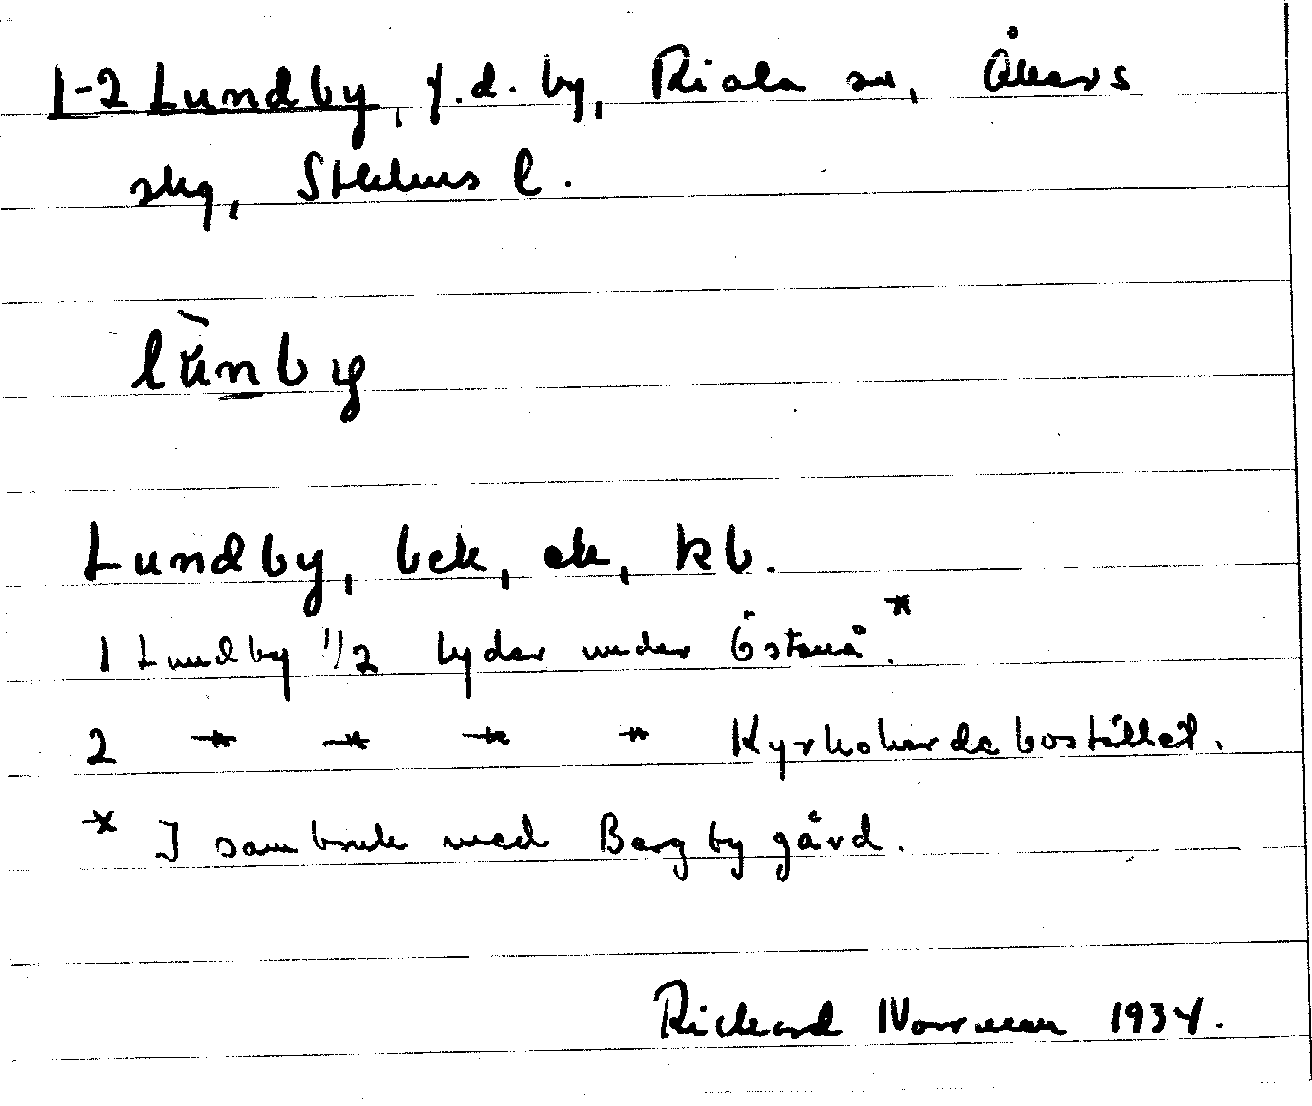 1-2 Lundby, f.d. by, Riala sn, Åkers
skg, Sthlms l.
lùnby
Lundby, bek, ek, kb.
1 Lundby 1/2 lyder under Östanå.*
2 -"- -"- -"- " Kyrkoherdebostället.
* I sambruk med Bergby gård.
Richard Norrman 1934.